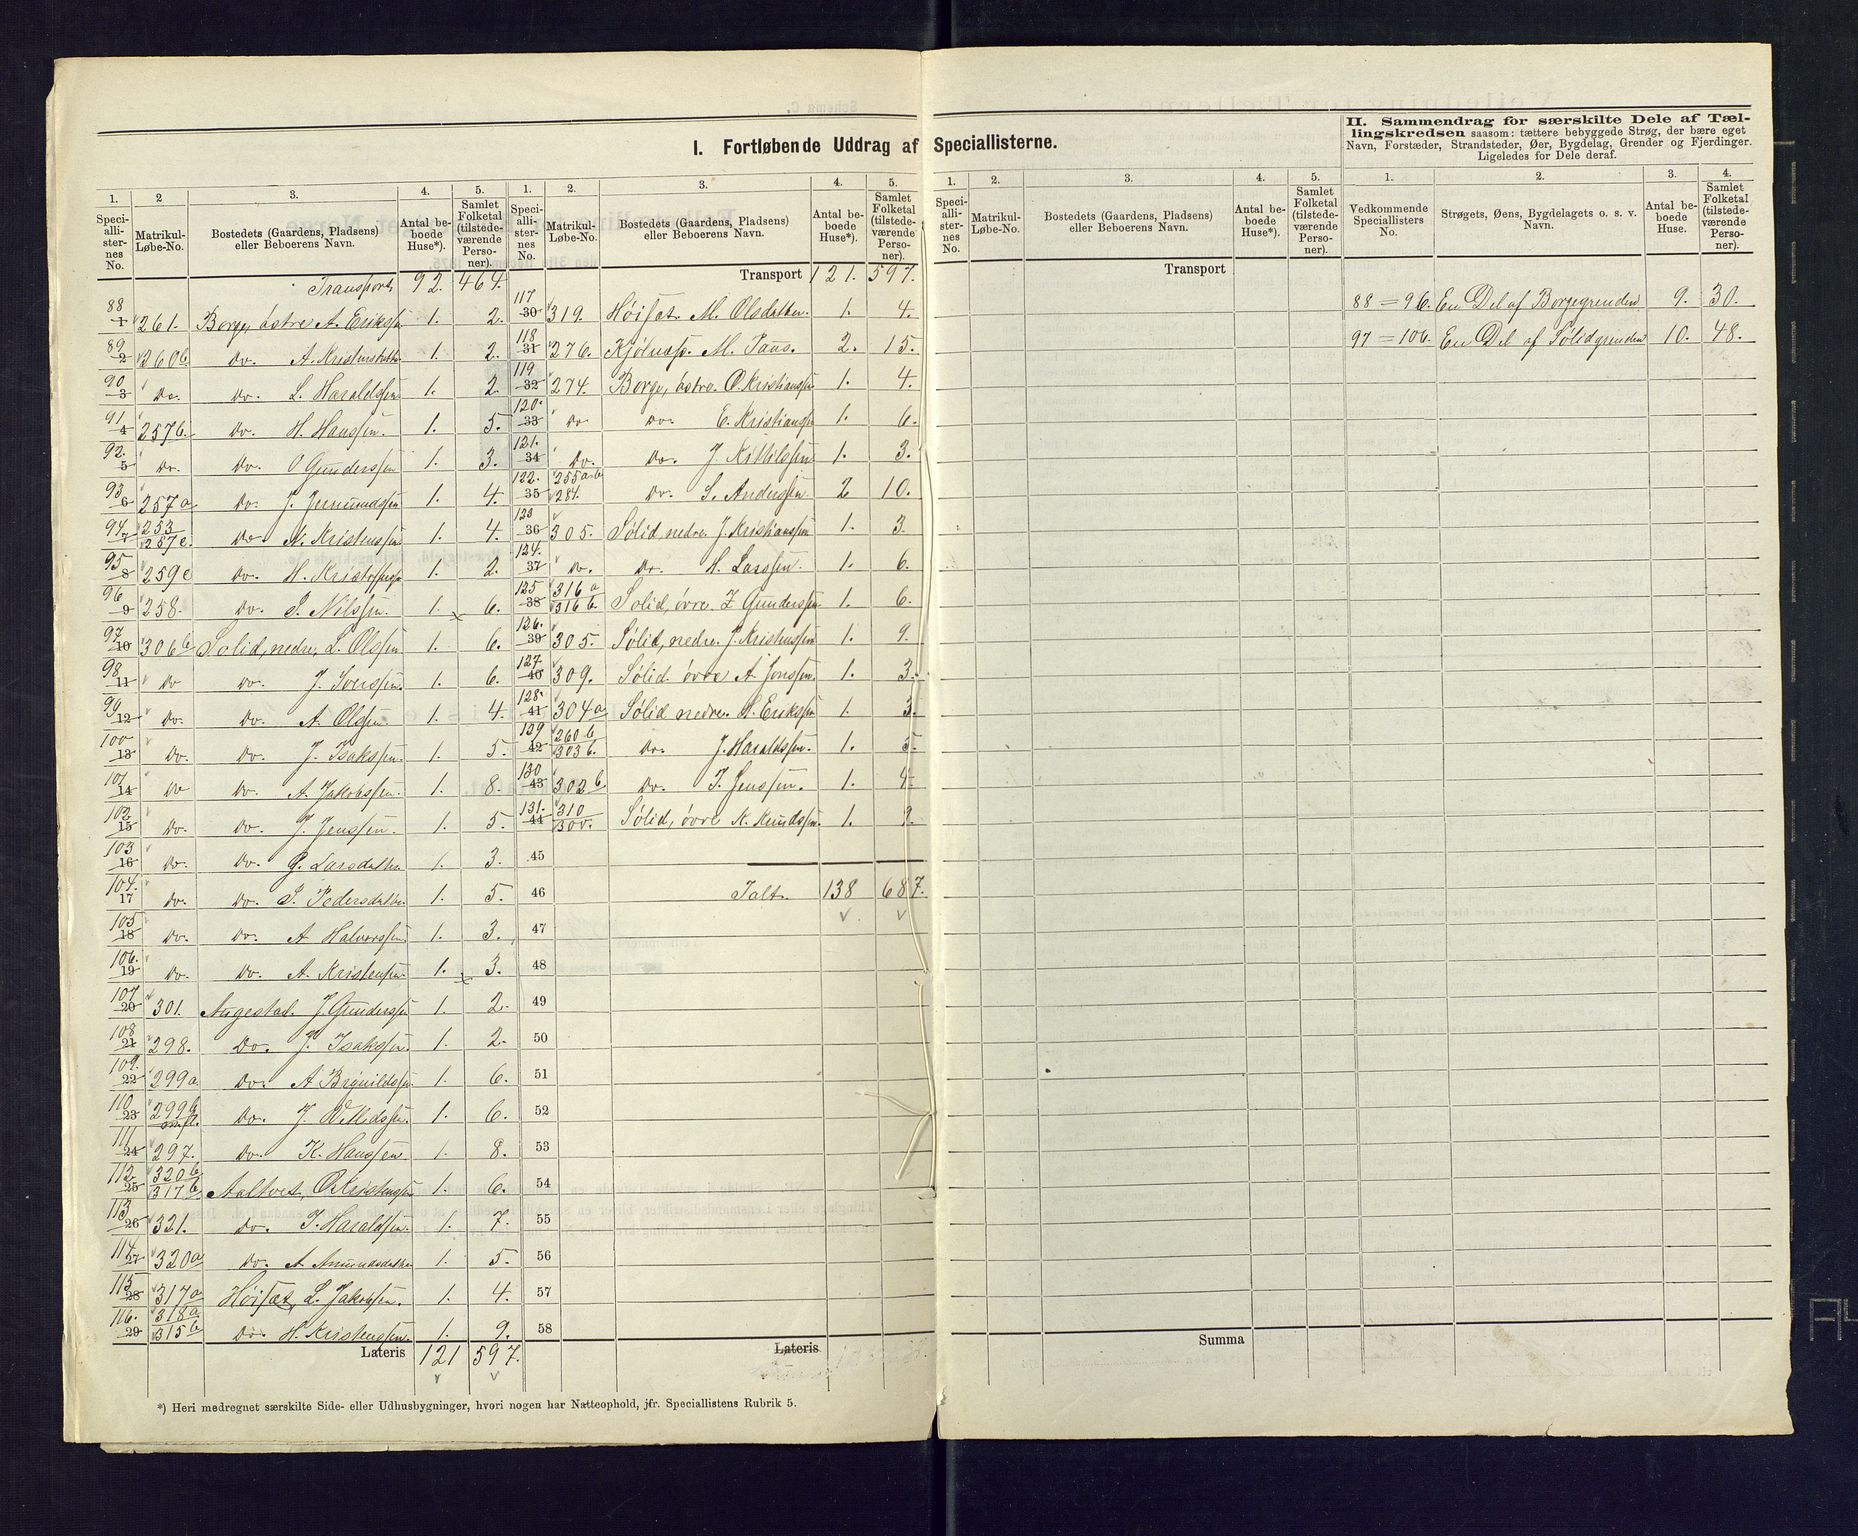 I. Fortløbende Uddrag af Speciallisterne.
II. Sammendrag for særskilte Dele af Tæl-
lingskredsen saasom: tættere bebyggede Strøg, der bære eget
Navn, Forstæder, Strandsteder, Øer, Bygdelag, Grender og Fjerdinger.
Ligeledes for Dele deraf.
1. 2 3. 4. 5.
Speciallisternes No. Matrikul-Løbe-No. Bostedets (Gaardens, Pladsens) eller Beboerens Navn. Antal beboede Huse*). Samlet Folketal (tilstedeværende Personer).
Transport 92. 464.
88 1 261. Borge, østre A. Eriksen 1. 2.
89 2 260b do. A. Kristensdatter 1. 2.
90 3 Do. do. L. Haraldssen 1. 2.
91 4 257b. do. H. Hanssen. 1. 5.
92. 5 do. do. O Gunderssen 1. 3.
93 6 257a do. J. Jermundssen 1. 4.
94 7 253 257c. do. N. Kristenssen 1. 4.
95 8 259c do. H. Kristoffersen 1. 2.
96 9 258. do. S. Nilssen. 1. 6.
97 10 306b Solid, nedre, L. Olssen 1. 6.
98 11 do do. J. Iverssen. 1. 6.
99 12 do. do. A. Olssen 1. 4.
100 13 do. do. J. Isakssen. 1. 5.
101 14 do do. A. Jakobssen. 1. 8.
102 15 do. do. J. Jenssen. 1. 5.
103 16 do. do. G. Larsdatter 1. 3.
104. 17 do. do. S. Pedersdatter 1. 5.
105 18 do. do. A Halvorssen. 1. 3.
106. 19 do. do. A. Kristenssen. 1. 3.
107 20 301. Augestad. J. Gunderssen 1. 2.
108 21 298. do. J. Isakssen. 1. 2.
109. 22 299a. do. A Brynildssen 1. 6.
110 23 299b m.fl. do. J. 1. 6.
111 24 297. do. K. Hanssen. 1. 8.
112 25 320b 317b Aaltvet, O Kristenssen 1. 6.
113 26 321. do. J. Haraldssen. 1. 7.
114 27 320a do. A. Amundsdatter 1. 5.
115 28 317a Høisæt, L. Jakobssen. 1. 4.
116. 29 318a 315b do. H. Kristenssen. 1. 9.
Lateris 121 597.
1. 2. 3. 4. 5.
Speciallisternes No. Matrikul-Løbe-No. Bostedets (Gaardens, Pladsens) eller Beboerens Navn. Antal beboede Huse*). Samlet Folketal (tilstedeværende Personer).
Transport 121. 597.
117 30 319. Høisæt. M. Olsdatter. 1. 4.
118 31 276. Kjølnæs. M. Paus. 2. 15.
119 32 274. Borge, østre. O. Kristianssen 1. 4.
120. 33 do do. E. Kristianssen 1. 6.
121. 34 do. do. J. Kittilssen 1. 3.
122. 35 255a.b 284. do. S. Anderssen. 2 10.
123 36 305. Sølid, nedre J. Kristianssen 1. 3
124. 37 do. do. H. Larssen. 1. 6.
125 38 316a 316b. Solid, øvre Z Gunderssen 1. 6.
126. 39 305. Sølid, nedre. J. Kristenssen 1. 9.
127. 40 309. Sølid øvre A Jonssen. 1. 3.
128. 41 304a Sølid nedre. S. Erikssen 1. 3.
129 42 260b 303b. do. J. Haraldssen. 1. 5.
130 43 302b do. J. Jenssen. 1. 4.
131. 44 310 300. Sølid, øvre N. Knudssen. 1. 2.
45
46 Ialt. 138 687.
47
48
49
50
51
52
53
54
55
56
57
58
Lateris
1. 2. 3. 4. 5.
Speciallisternes No. Matrikul-Løbe-No. Bostedets (Gaardens, Pladsens) eller Beboerens Navn. Antal beboede Huse*). Samlet Folketal (tilstedeværende Personer).
Transport
Summa
1. 2. 3. 4.
Vedkommende Speciallisters No. Strøgets, Øens, Bygdelagets o. s. v. Navn. Antal beboede Huse. Samlet Folketal (tilstedeværende Personer).
88 = 96. En Del af Borgegrenden 9. 30.
97 = 106. En Del af Sølidgrenden 10. 48.
*) Heri medregnet særskilte Side- eller Udhusbygninger, hvori nogen har Natteophold, jfr. Speciallistens Rubrik 5.